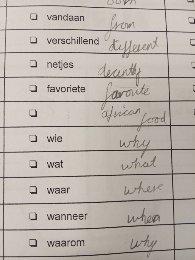 vandaan from
verschillend different
netjes decently
favoriete favorite
african food
wie why
wat what
waar where
wanneer when
waarom why